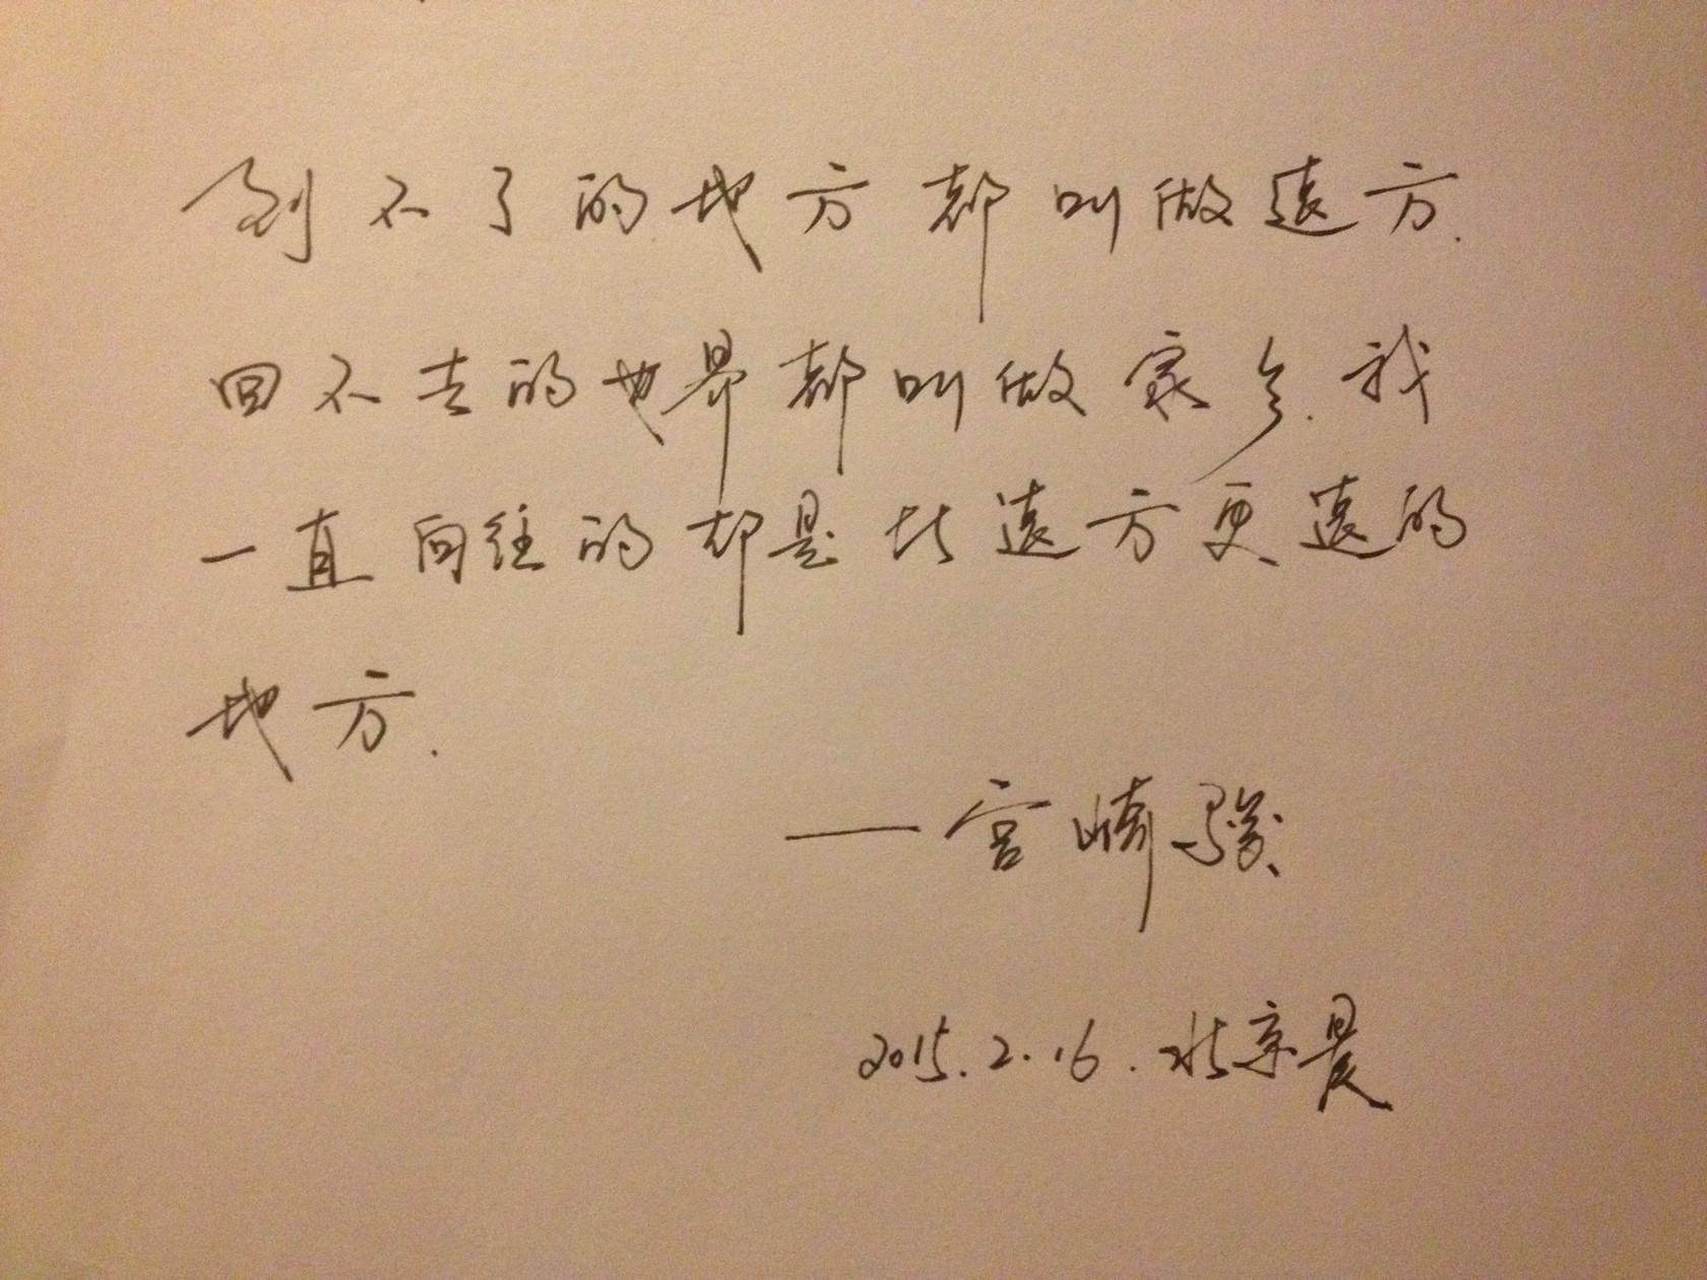 到不了的地方都叫做遠方.
回不去的世界都叫做家乡.我
一直向往的却是比遠方更遠的
地方.
—宫崎骏
2015.2.16.北京晨